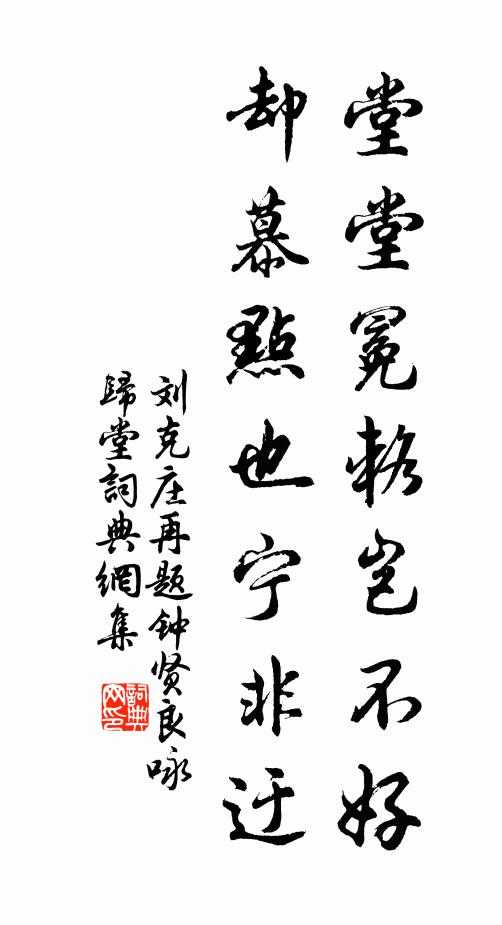 堂堂冕輅岂不好
却慕點也宁非迂
刘克庄再题钟贤良咏
歸堂詞典網集
詞典网印